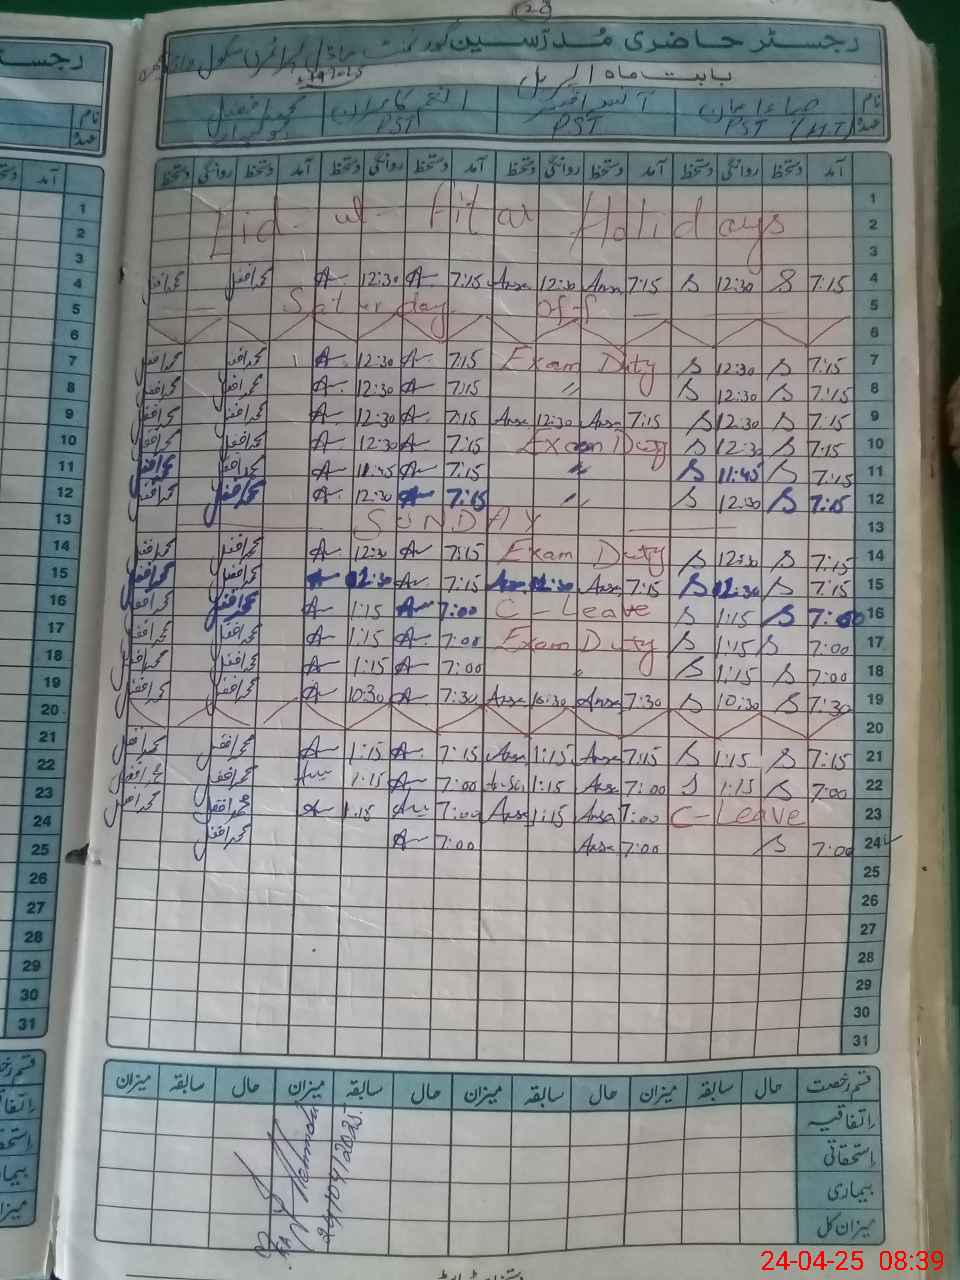 رجسٹر حاضری مُدرّسین گورنمنٹ ماڈل پرائمری سکول
بابت ماہ اپریل 2025
نام
عہدہ
PST (H.T)
PST
PST
آمد دستخط روانگی دستخط آمد دستخط روانگی دستخط آمد دستخط روانگی دستخط آمد دستخط روانگی دستخط
1
2 Eid-ul-Fitar Holidays
3
4 7:15 S 12:30 S 7:15 Ansa 12:30 Ansa 7:15 A 12:30 A محمد افضل محمد افضل
5 Saturday off
6
7 7:15 S 12:30 S Exam Duty 7:15 A 12:30 A محمد افضل محمد افضل
8 7:15 S 12:30 S 〃 7:15 A 12:30 A محمد افضل محمد افضل
9 7:15 S 12:30 S 7:15 Ansa 12:30 Ansa 7:15 A 12:30 A محمد افضل محمد افضل
10 7:15 S 12:30 S Exam Duty 7:15 A 12:30 A محمد افضل محمد افضل
11 7:15 S 11:45 S 〃 7:15 A 11:45 A محمد افضل محمد افضل
12 7:15 S 12:30 S 〃 7:15 A 12:30 A محمد افضل محمد افضل
13 SUNDAY
14 7:15 S 12:30 S Exam Duty 7:15 A 12:30 A محمد افضل محمد افضل
15 7:15 S 12:30 S 7:15 Ansa 12:30 Ansa 7:15 A 12:30 A محمد افضل محمد افضل
16 7:00 S 1:15 S C-Leave 7:00 A 1:15 A محمد افضل محمد افضل
17 7:00 S 1:15 S Exam Duty 7:00 A 1:15 A محمد افضل محمد افضل
18 7:00 S 1:15 S 〃 7:00 A 1:15 A محمد افضل محمد افضل
19 7:30 S 10:30 S 7:30 Ansa 10:30 Ansa 7:30 A 10:30 A محمد افضل محمد افضل
20
21 7:15 S 1:15 S 7:15 Ansa 1:15 Ansa 7:15 A 1:15 A محمد افضل محمد افضل
22 7:00 S 1:15 S 7:00 Ansa 1:15 Ansa 7:00 A 1:15 محمد افضل محمد افضل
23 C-Leave 7:00 Ansa 1:15 Ansa 7:00 1:15 A محمد افضل محمد افضل
24 7:00 S 7:00 Ansa 7:00 A محمد افضل
25
26
27
28
29
30
31
قسم رخصت حال سابقہ میزان حال سابقہ میزان حال سابقہ میزان حال سابقہ میزان
اتفاقیہ
استحقاقی
بیماری
میزان کل
24/04/2025
24-04-25 08:39